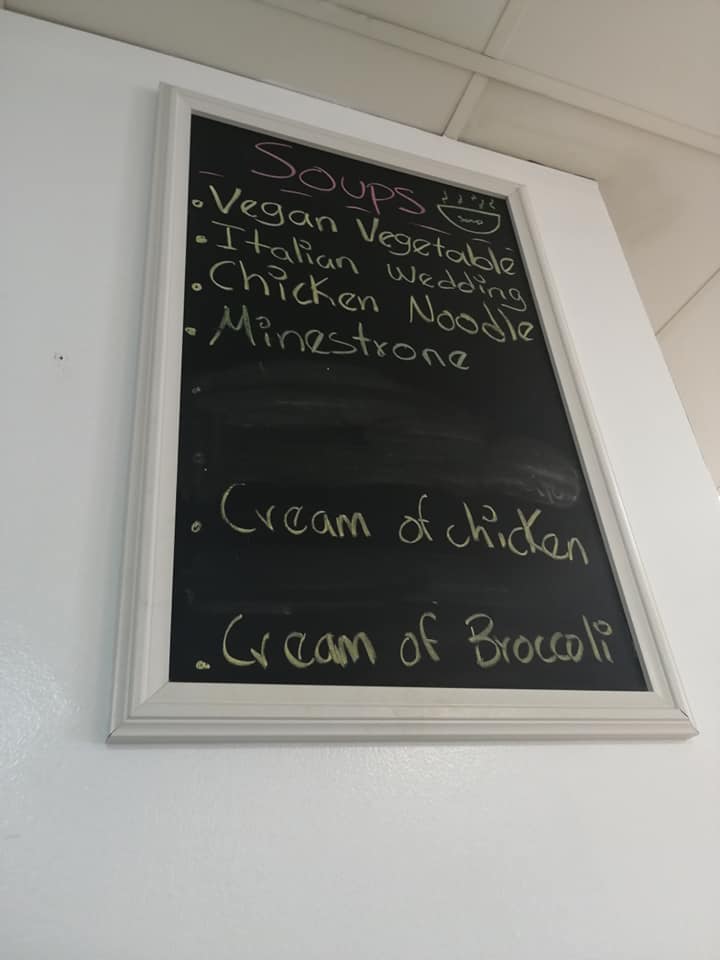 Soups
Soup
• Vegan Vegetable
• Italian Wedding
• Chicken Noodle
• Minestrone
• Cream of chicken
• Cream of Broccoli